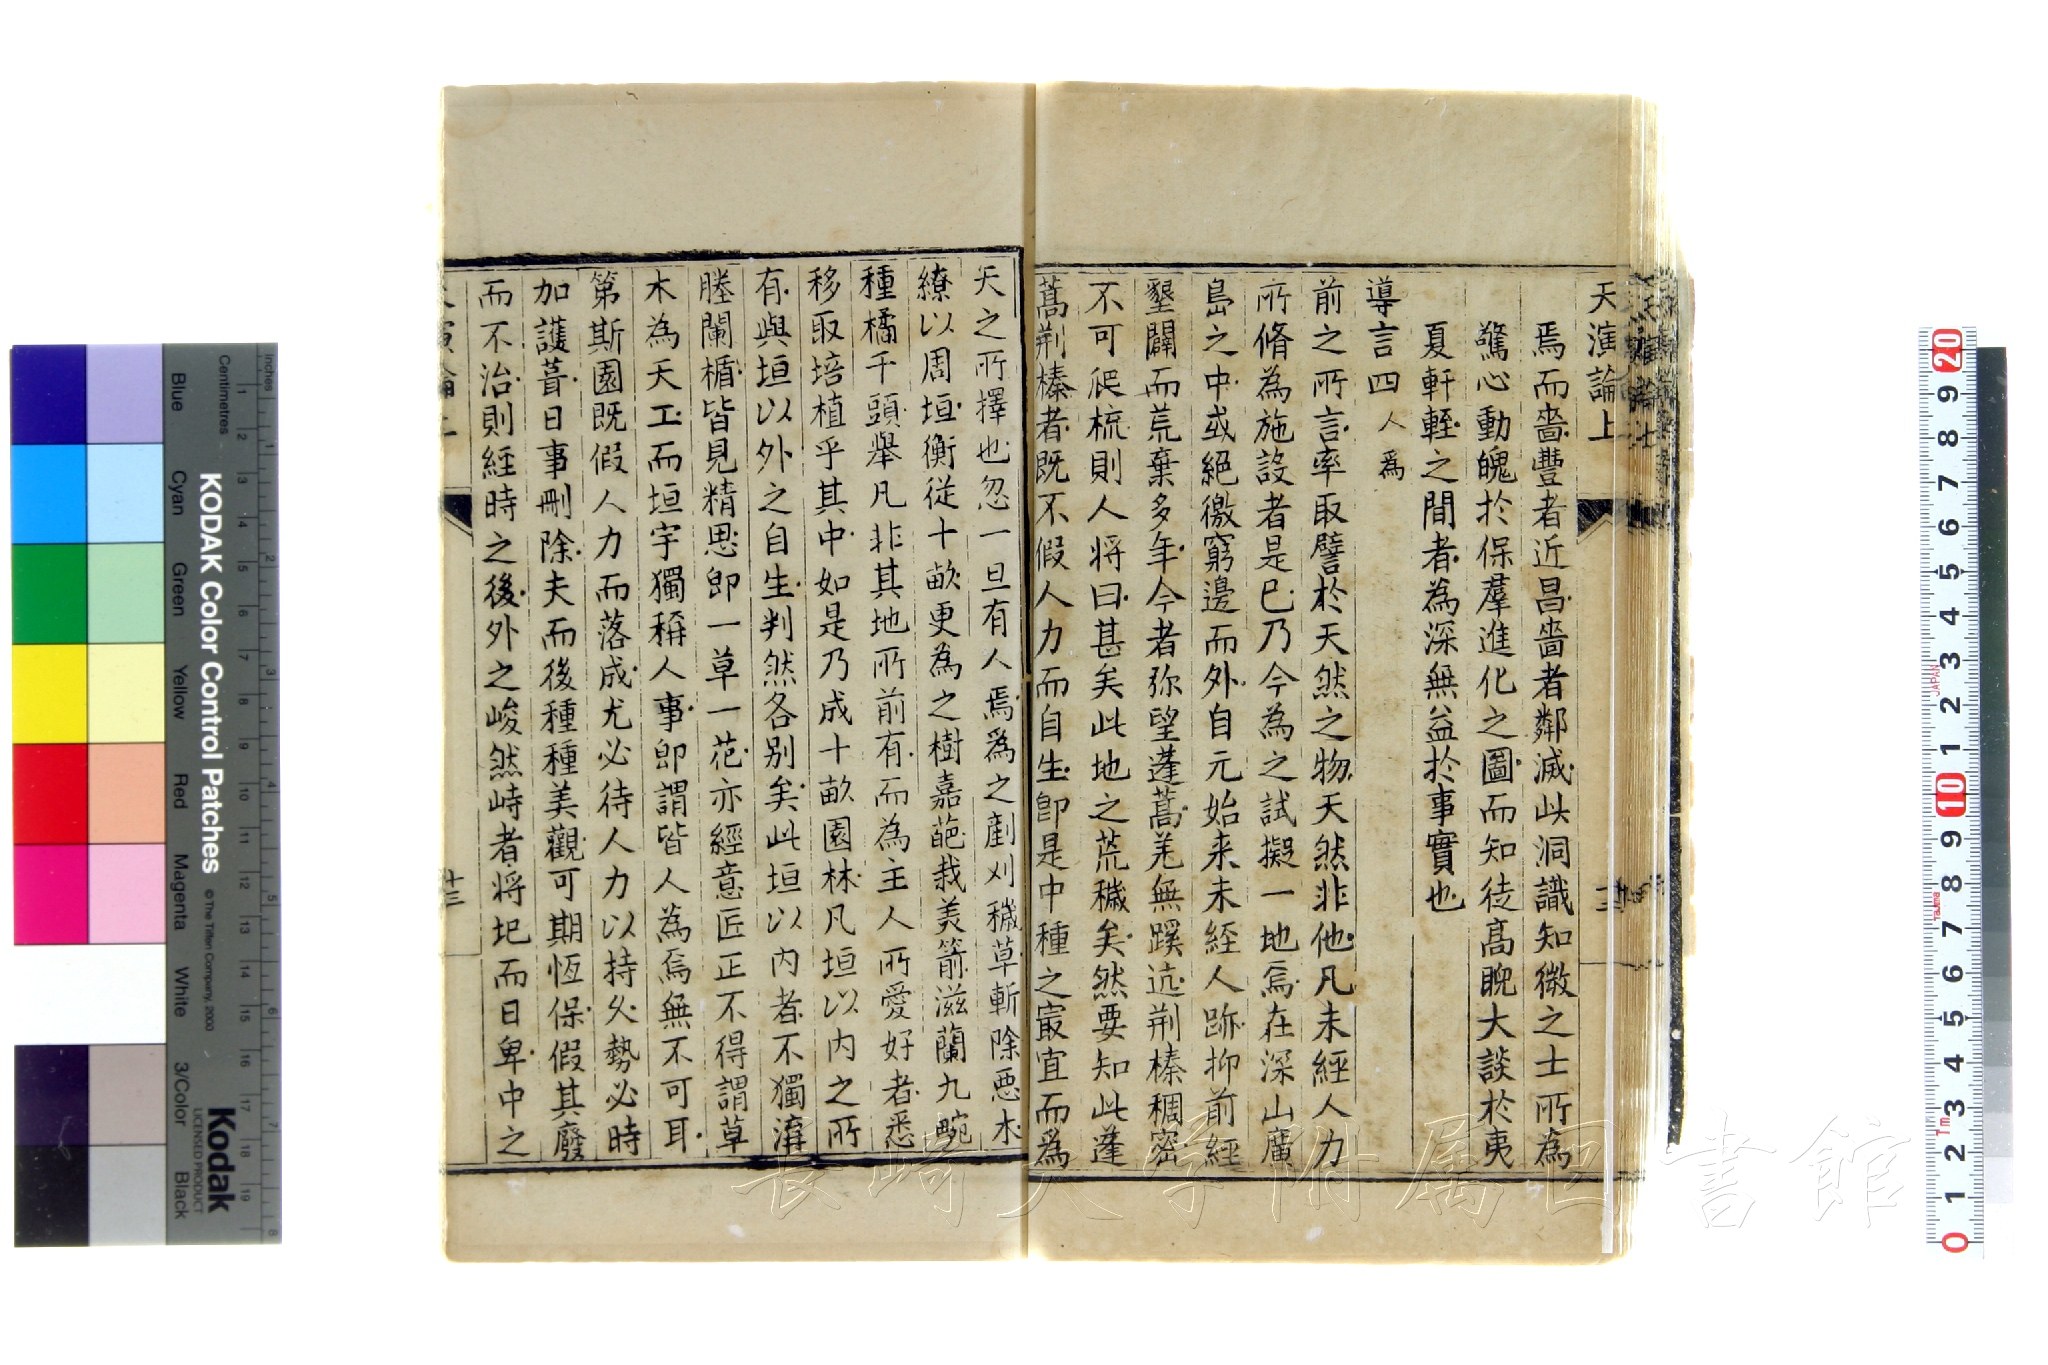 天演論上
焉而嗇豐者近昌嗇者鄰滅此洞識知微之士所為
驚心動魄於保羣進化之圖而知徒高睨大談於夷
夏軒輊之間者為深無益於事實也
導言四 人為
前之所言率取譬於天然之物天然非他凡未經人力
所脩為施設者是已乃今為之試擬一地焉在深山廣
島之中或絕徼窮邊而外自元始来未經人跡抑前經
墾闢而荒棄多年今者彌望蓬蒿羌無蹊迒荆榛稠密
不可爬梳則人将曰甚矣此地之荒穢矣然要知此蓬
蒿荆榛者既不假人力而自生即是中種之冣宜而為
天之所擇也忽一旦有人焉為之剷刈穢草斬除惡木
繚以周垣衡從十畝更為之樹嘉葩栽美箭滋蘭九畹
種橘千頭舉凡非其地所前有而為主人所愛好者悉
移取培植乎其中如是乃成十畝園林凡垣以内之所
有與垣以外之自生判然各別矣此垣以内者不獨溝
塍闌楯皆見精思即一草一花亦經意匠正不得謂草
木為天工而垣宇獨稱人事即謂皆人為焉無不可耳
第斯園既假人力而落成尤必待人力以持久勢必時
加護葺日事刪除夫而後種種美觀可期恆保假其廢
而不治則經時之後外之峻然峙者将圯而日卑中之
十三
KODAK Color Control Patches
© The Tiffen Company, 2000
Kodak
LICENSED PRODUCT
Inches
Centimetres
Blue
Cyan
Green
Yellow
Red
Magenta
White
3/Color
Black
長崎大学附属図書館
JAPAN
Tajima